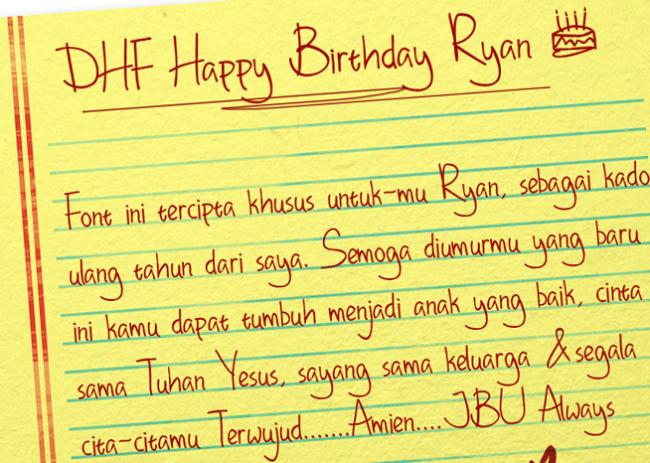 DHF Happy Birthday Ryan
Font ini tercipta khusus untuk-mu Ryan, sebagai kado
ulang tahun dari saya. Semoga diumurmu yang baru
ini kamu dapat tumbuh menjadi anak yang baik, cinta
sama Tuhan Yesus, sayang sama keluarga & segala
cita-citamu Terwujud.......Amien....JBU Always